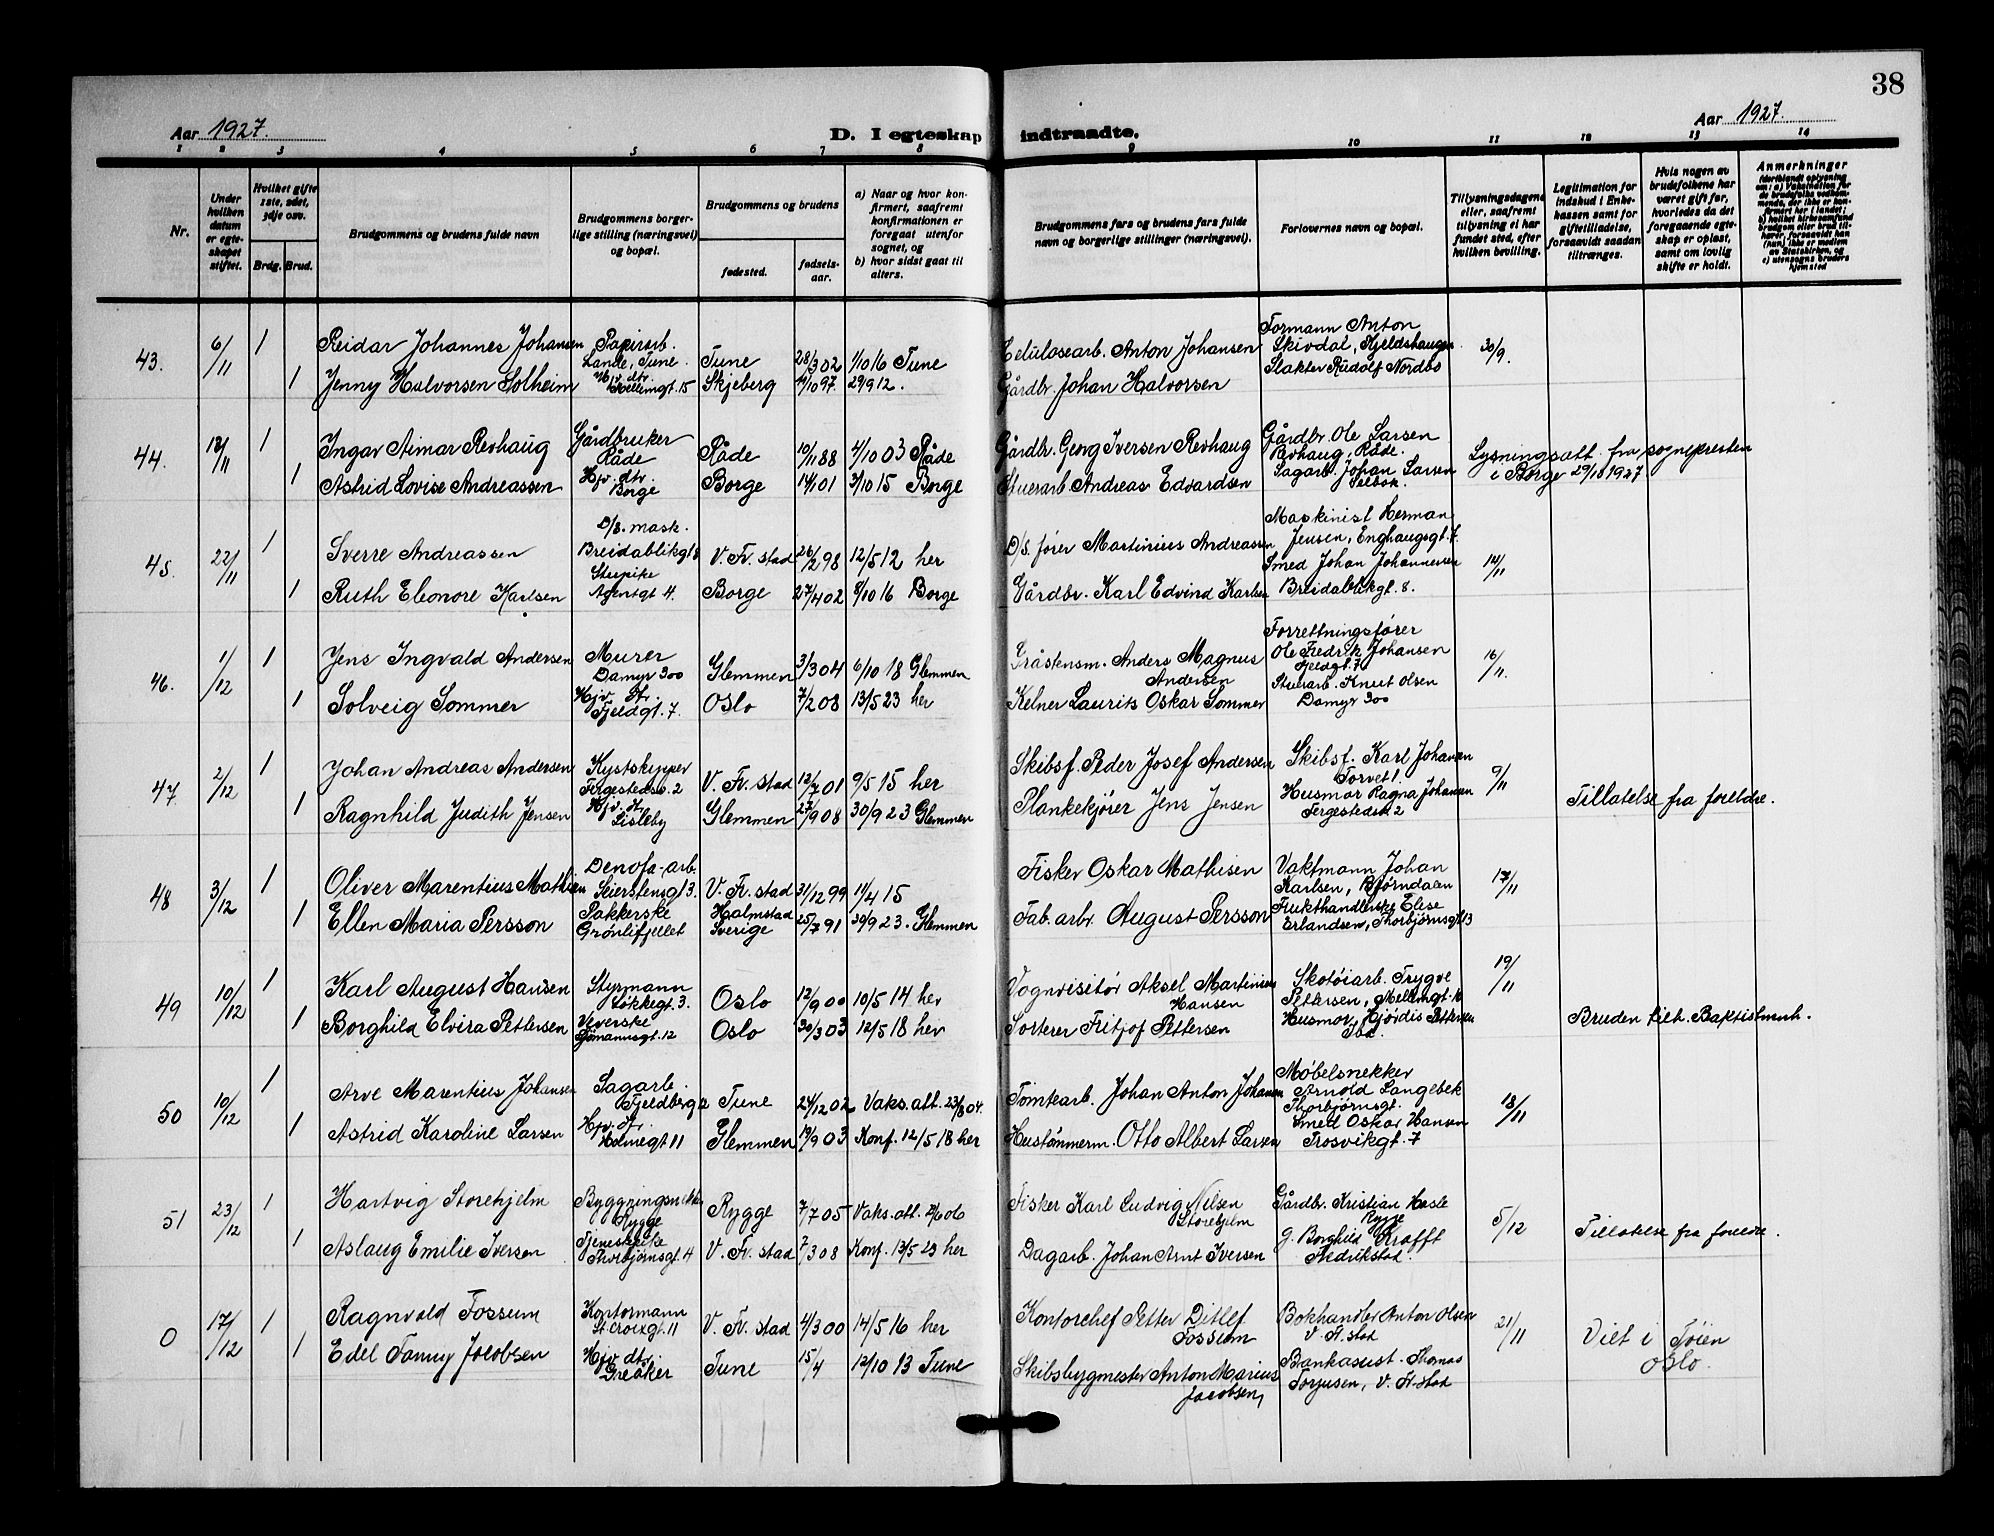 38
Aar 1927.
D. I egteskap indtraadte.
Aar 1927.
1 2 3 4 5 6 7 8 9 10 11 12 13 14
Nr.
Under hvilken datum er egteskapet stiftet.
Hvilket gifte 1ste, 2det, 3dje osv.
Brdg. Brud.
Brudgommens og brudens fulde navn
Brudgommens borgerlige stilling (næringsvei) og bopæl.
Brudgommens og brudens
fødested.
fødselsaar.
a) Naar og hvor konfirmert, saafremt konfirmationen er foregaat utenfor sognet, og
b) hvor sidst gaat til alters.
Brudgommens fars og brudens fars fulde navn og borgerlige stillinger (næringsvei).
Forlovernes navn og bopæl.
Tillysningsdagene eller, saafremt tillysning ei har fundet sted, efter hvilken bevilling.
Legitimation for indskud i Enkekassen samt for giftetilladelse, forsaavidt saadan tiltrænges.
Hvis nogen av brudefolkene har været gift før, hvorledes da det foregaaende egteskap er opløst, samt om lovlig skifte er holdt.
Anmerkninger
43. 6/11 1 Reidar Johannes Johansen Papirarb. Lande, Tune. Tune 28/3 02 1/10 16 Tune Celulosearb. Anton Johansen Formann Anton Skivdal, Kjeldshaugen 30/9.
1 Jenny Halvorsen Solheim Hjv. dtr. 15 Skjeberg 11/10 97 29/9 12. Gårdbr. Johan Halvorsen Slakter Rudolf Nordbo
44. 12/11 1 Ingar Aimar Revhaug Gårdbruker Råde Råde 10/11 88 4/10 03 Råde Gårdbr. Georg Iversen Revhaug Gårdbr. Ole Larsen Revhaug, Råde. Lysningsatt. fra sognepresten i Borge 29/10 1927.
1 Astrid Lovise Andreassen Hjv. dtr. Borge Borge 14/1 01 3/10 15 Borge Stuerarb Andreas Edvardsen Sagarb. Johan Larsen Selbak.
45. 22/11 1 Sverre Andreassen D/s. mask. Breidablikgt 8 V. Fr. stad 26/2 98 12/5 12 her D/s. fører Martinius Andreassen Maskinist Herman Jensen, Enghaugsgt. 7 14/11
1 Ruth Eleonore Karlsen Strepike Agentgt 4. Borge 27/4 02 8/10 16 Borge Gårdbr. Karl Edvind Karlsen Smed Johan Johannesen Breidablikgt. 8.
46. 1/12 1 Jens Ingvald Andersen Murer Damyr 300 Glemmen 3/3 04 6/10 18 Glemmen Gråstensm. Anders Magnus Andersen Forrettningsfører Ole Fredrik Johansen Fjeldgt. 7 16/11.
1 Solveig Sommer Hjv. dtr. Fjeldgt. 7. Oslo 7/2 08 13/5 23 her Kelner Laurits Oskar Sommer Stuerarb. Knut Olsen Damyr 300
47 2/12 1 Johan Andreas Andersen Kystskipper Fergestedsv. 2 V. Fr. stad 12/7 01 9/5 15 her Skibsf. Peder Josef Andersen Skibsf. Karl Johansen Torvet 1. 9/11
1 Ragnhild Judith Jensen Hjv. dtr. Lisleby Glemmen 27/9 08 30/9 23 Glemmen Plankekjører Jens Jensen Husmor Ragna Johansen Fergestedsv 2 Tillatelse fra foreldre.
48 3/12 1 Oliver Marentius Mathisen Denofa-arb. Seierstensgt 3. V. Fr. stad 31/12 99 11/4 15 Fisker Oskar Mathisen Vaktmann Johan Karlsen, Bjørndalen 17/11
1 Ellen Maria Persson Pakkerske Grønlifjellet Haalmstad Sverige 25/7 91 29/9 23. Glemmen Fab. arb. August Persson Frukthandlerske Elise Erlandsen, Thorbjørnsgt 13
49 10/12 1 Karl August Hansen Styrmann Løkkegt. 3. Oslo 12/9 00 10/5 14 her Vognvisitør Aksel Martinius Hansen Skotøiarb. Trygve Pettersen, Mellemgt. 10 19/11
1 Borghild Elvira Pettersen Veverske Sjømannsgt. 12 Oslo 30/3 03 12/5 18 her Sorterer Fritjof Pettersen Husmor Hjørdis Pettersen Ibd. Bruden tilh. Baptistmenh.
50 10/12 1 Arve Marentius Johansen Sagarb. Fjeldberg 2 Tune 24/12 02 Vaks. att. 23/8 04. Tomtearb. Johan Anton Johansen Møbelsnekker Arnold Langebek Thorbjørnsgt. 18/11
1 Astrid Karoline Larsen Hjv. dtr. Holmegt 11 Glemmen 19/9 03 Konf. 12/5 18 her Hustømmerm. Otto Albert Larsen Smed Oskar Hansen Trosvikgt. 7
51 23/12 1 Hartvig Storehjelm Bygningsnekker Rygge Rygge 7/7 05 Vaks. att. 2/6 06 Fisker Karl Ludvig Nilsen Storehjelm Gårdbr. Kristian Hasle Rygge 5/12 Tillatelse fra foreldre.
1 Aslaug Emilie Iversen Tjenestpike Thorbjørnsgt. 4 V. Fr. stad 7/3 08 Konf. 13/5 23 her Dagarb. Johan Arnt Iversen g. Borghild Krafft Fredrikstad.
0 17/12 1 Ragnvald Fossum Kontormann St. Croixgt. 11 V. Fr. stad 4/3 00 14/5 16 her Kontorchef Petter Ditlef Fossum Bokhandler Anton Olsen V. Fr. stad 21/11 Viet i Tøien Oslo.
1 Edel Fanny Jacobsen Hjv. dtr. Greaker Tune 15/4 12/10 13 Tune Skibsbygmester Anton Marius Jacobsen, Bankassist. Thomas Torjusen, V. Fr. stad